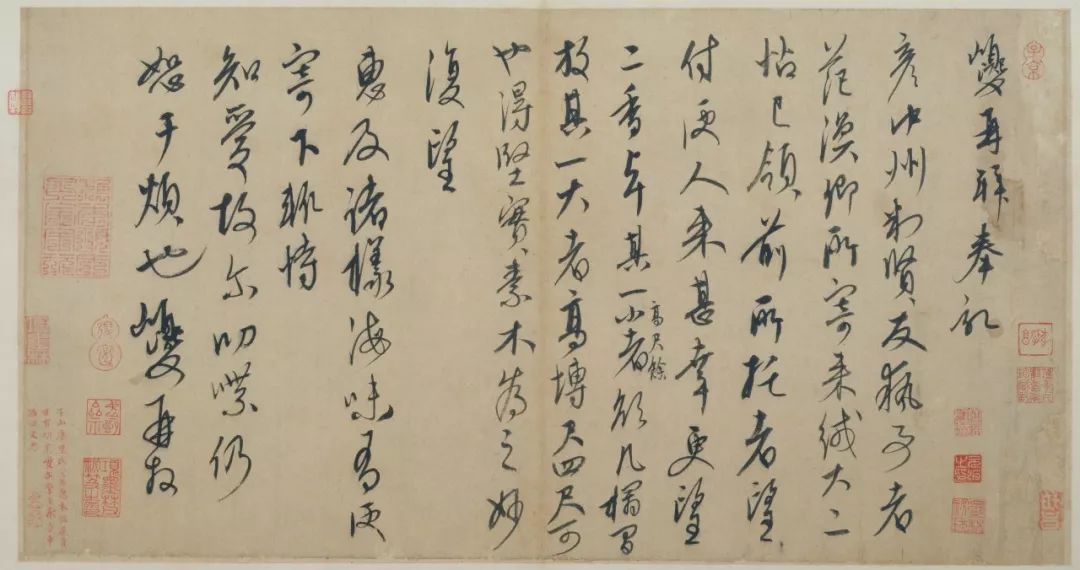 巙再拜奉記
彦中州判賢友執事者
范渼卿所寄来緘大二
帖已領前所托者望
付便人来甚幸更望
二香卓其一小者高尺餘於几榻間
放其一大者高博尺四尺可
也得堅實素木為之妙
復望
惠及諸様海味有便
寄下輒恃
知愛故尔叨喋仍
恕干煩也巙再拜